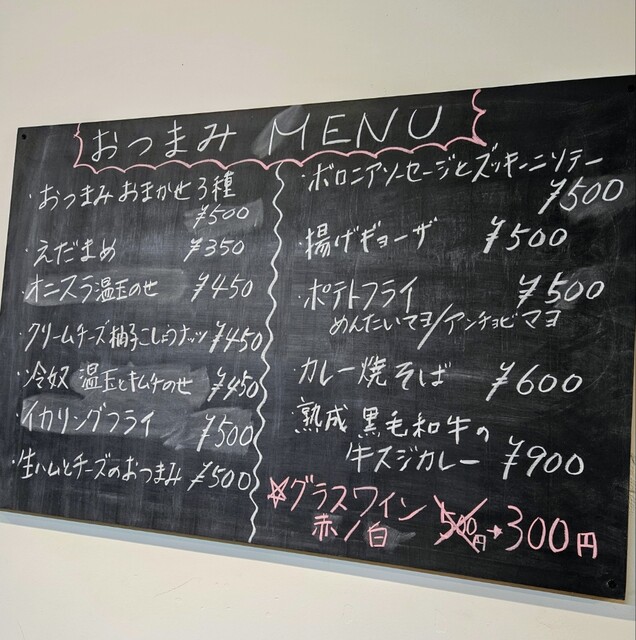 おつまみ MENU
・おつまみ おまかせ 3種
¥500
・えだまめ ¥350
・オニスラ温玉のせ ¥450
・クリームチーズ柚子こしょうナッツ ¥450
・冷奴 温玉とキムチのせ ¥450
・イカリングフライ ¥500
・生ハムとチーズのおつまみ ¥500
・ボロニアソーセージとズッキーニソテー
¥500
・揚げギョーザ ¥500
・ポテトフライ ¥500
めんたいマヨ/アンチョビマヨ
・カレー焼そば ¥600
・熟成 黒毛和牛の
牛スジカレー ¥900
☆グラスワイン
赤/白 500円→300円